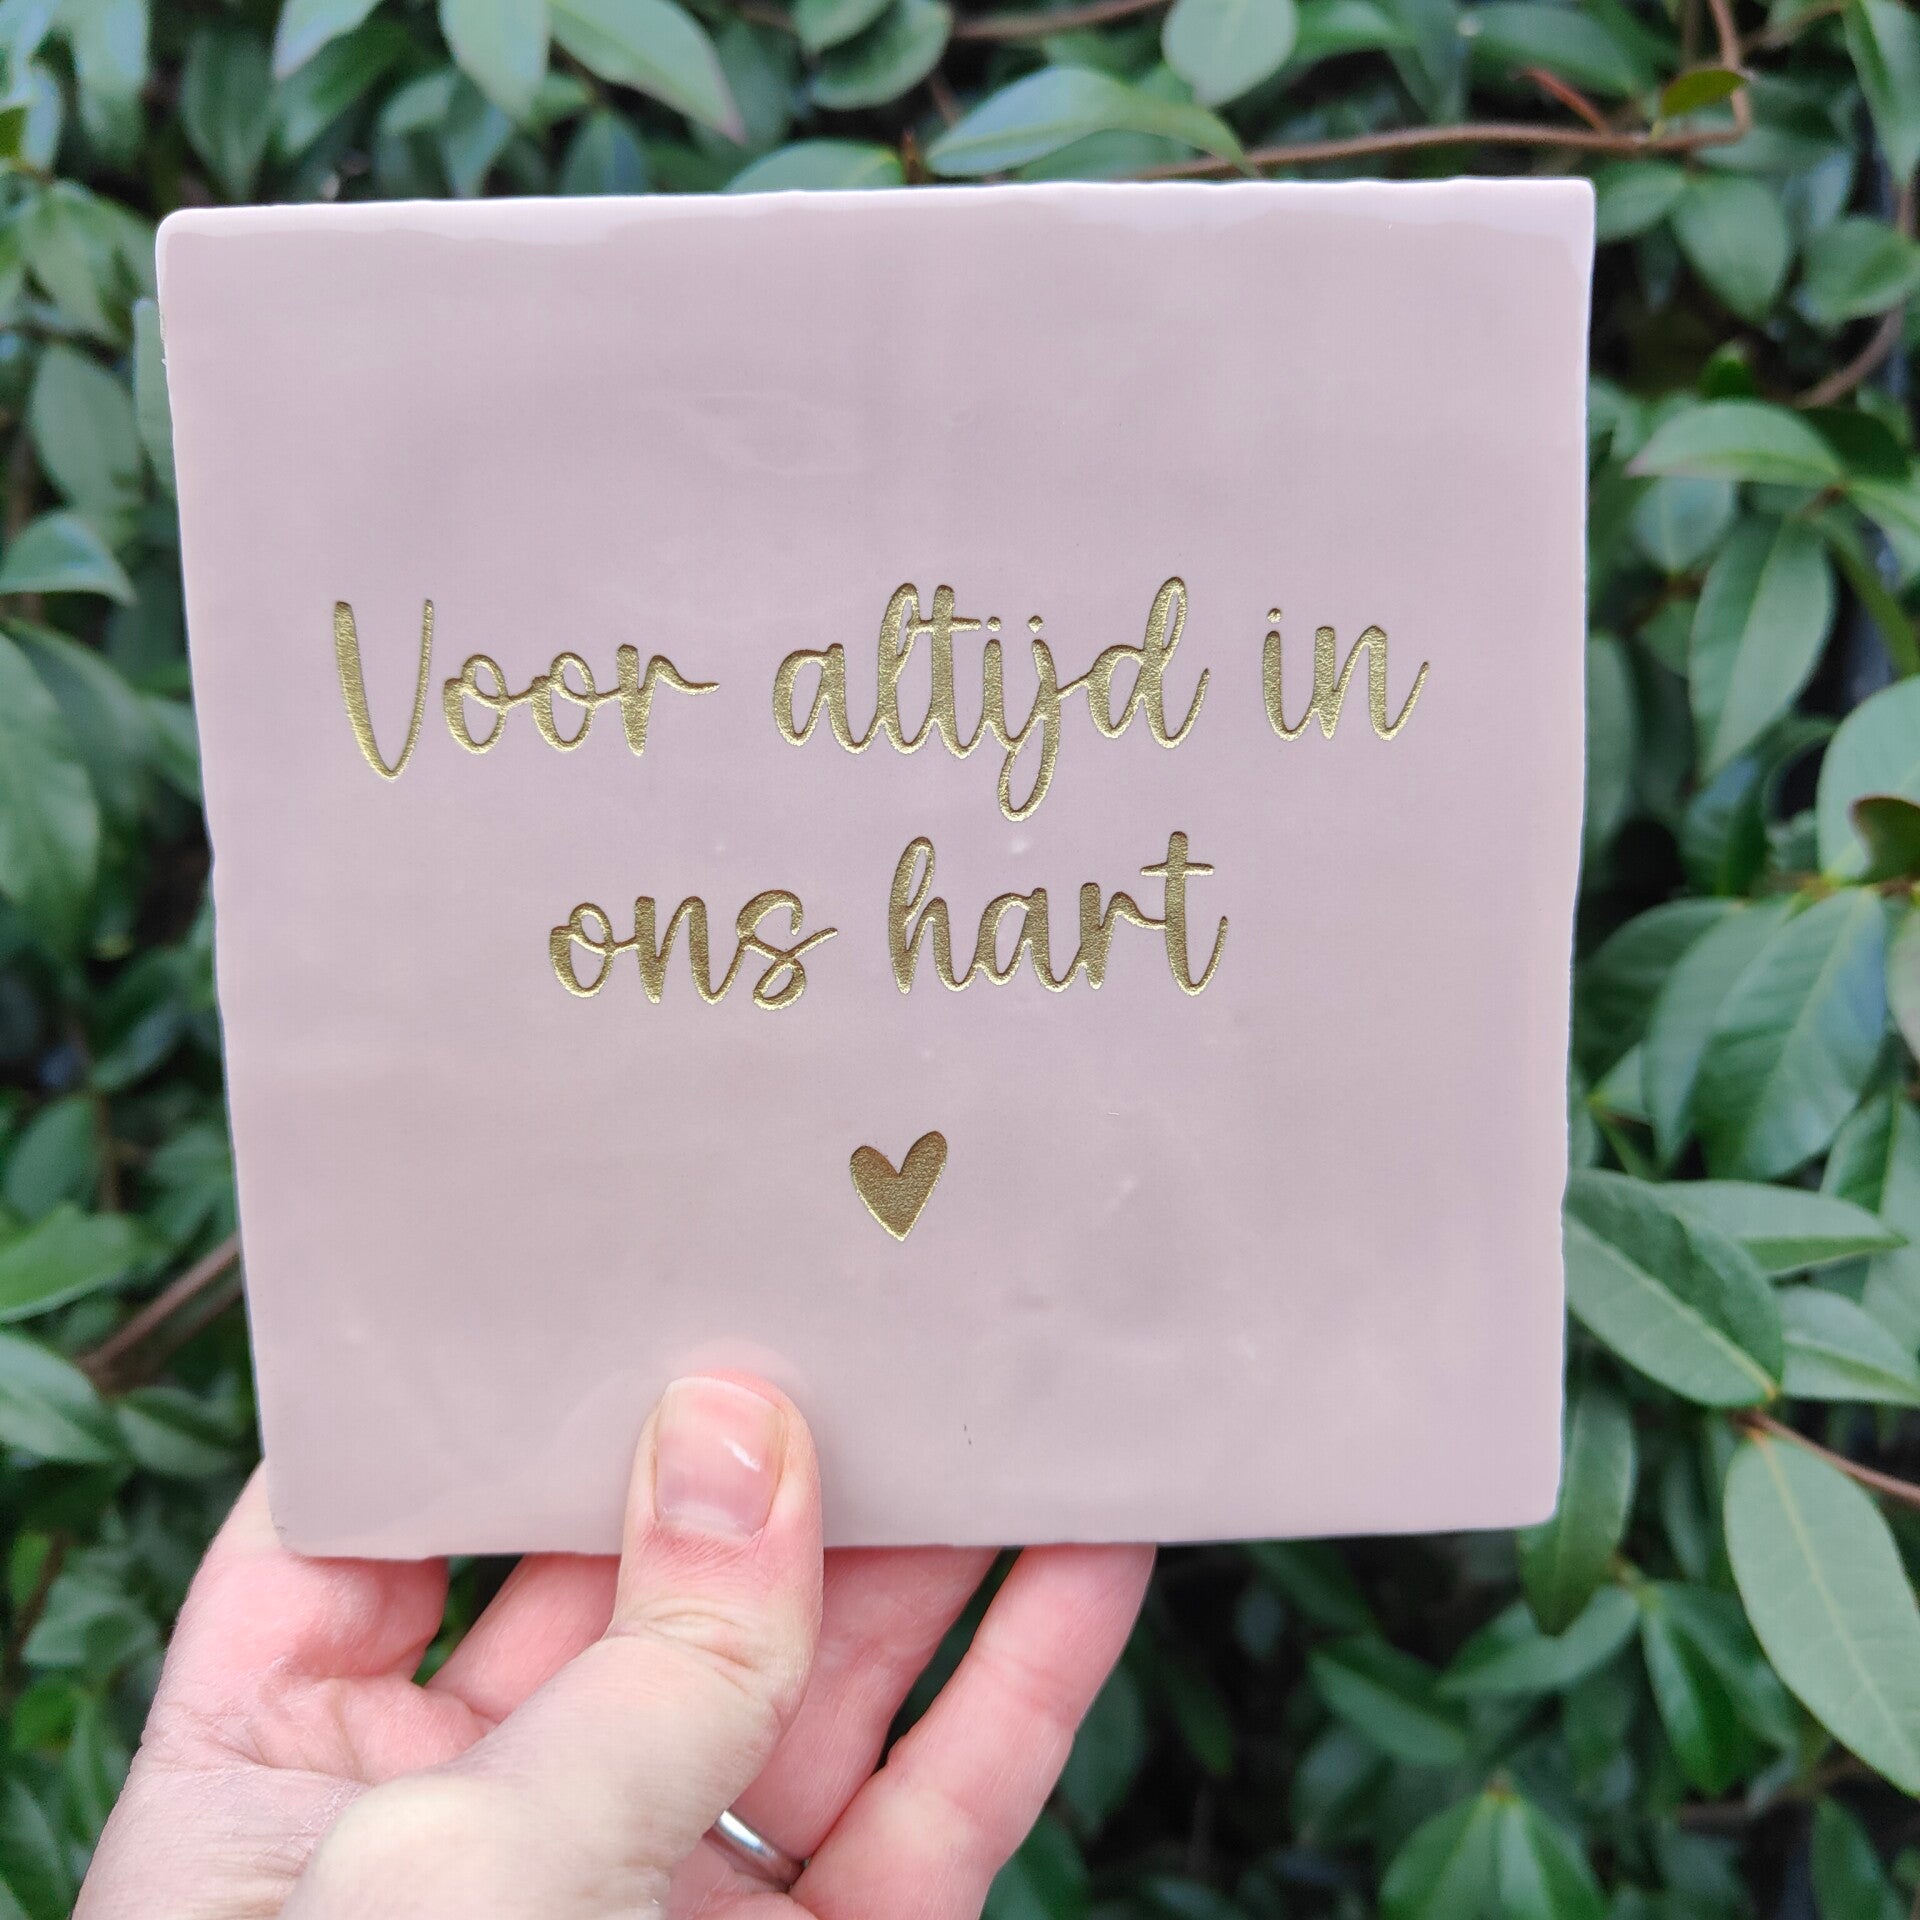 Voor altijd in
ons hart